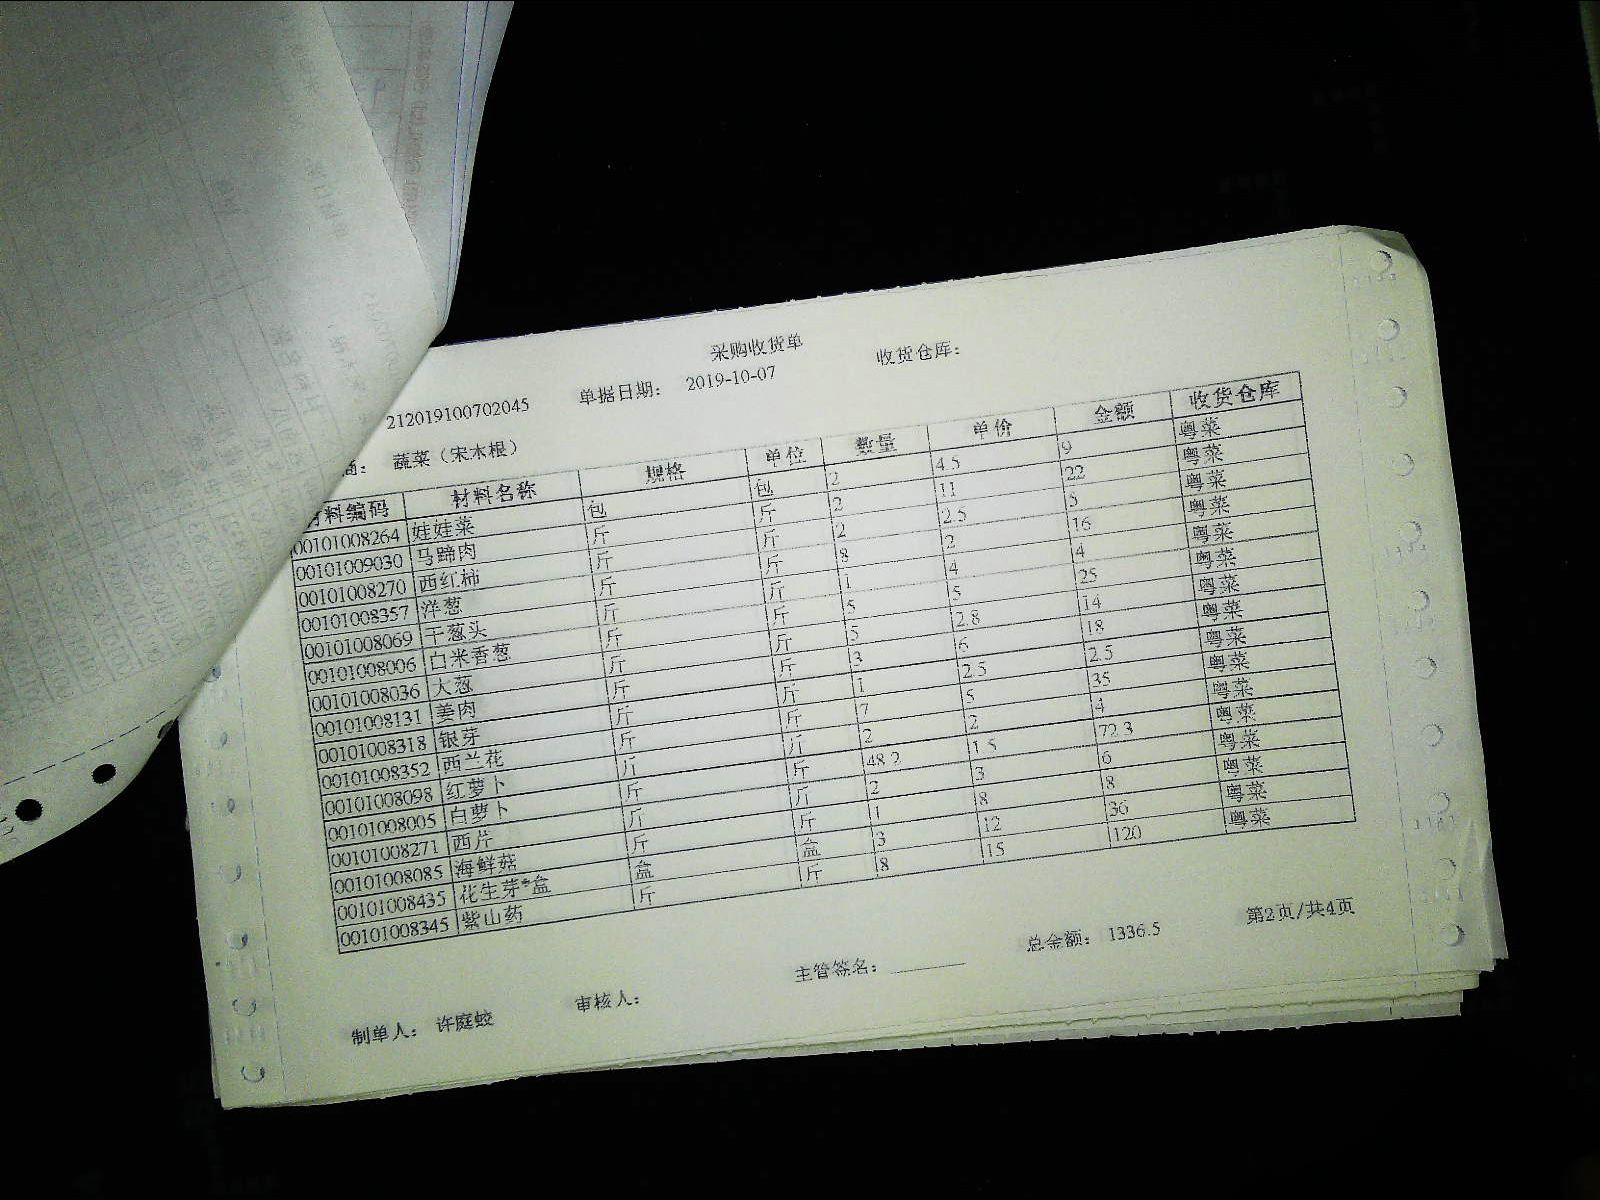 采购收货单
212019100702045 单据日期： 2019-10-07 收货仓库：
商： 蔬菜（宋木根）
材料编码 材料名称 规格 单位 数量 单价 金额 收货仓库
00101008264 娃娃菜 包 包 2 4.5 9 粤菜
00101009030 马蹄肉 斤 斤 2 11 22 粤菜
00101008270 西红柿 斤 斤 2 2.5 5 粤菜
00101008357 洋葱 斤 斤 8 2 16 粤菜
00101008069 干葱头 斤 斤 1 4 4 粤菜
00101008006 白米香葱 斤 斤 5 5 25 粤菜
00101008036 大葱 斤 斤 5 2.8 14 粤菜
00101008131 姜肉 斤 斤 3 6 18 粤菜
00101008318 银芽 斤 斤 1 2.5 2.5 粤菜
00101008352 西兰花 斤 斤 7 5 35 粤菜
00101008098 红萝卜 斤 斤 2 2 4 粤菜
00101008005 白萝卜 斤 斤 48.2 1.5 72.3 粤菜
00101008271 西芹 斤 斤 2 3 6 粤菜
00101008085 海鲜菇 斤 斤 1 8 8 粤菜
00101008435 花生芽*盒 盒 盒 3 12 36 粤菜
00101008345 紫山药 斤 斤 8 15 120 粤菜
制单人： 许庭蛟 审核人： 主管签名： 总金额： 1336.5 第2页/共4页